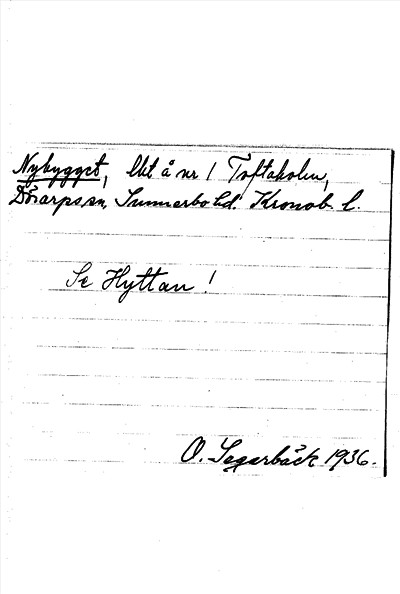 Nybygget, lht å nr 1 Toftaholm,
Dörarps sn, Sunnerbo hd. Kronob. l.
Se Hyttan!
O. Segerbäck 1936.